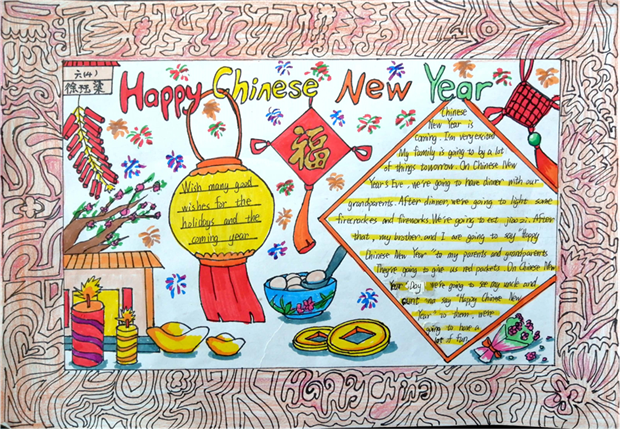 六(4)
Happy Chinese New Year
福
Wish many good
wishes for the
holidays and the
coming year
Chinese
New Year is
coming. I'm very excited
My family is going to by a lot
of things tomorrow. On Chinese New
Year's Eve, we're going to have dinner with our
grandparents. After dinner, we're going to light some
firecrackers and fireworks. We're going to eat jiao zi. After
that, my brother and I are going to say "Happy
Chinese New Year" to my parents and grandparents
They're going to give us red packets. On Chinese New
Year' Day, we're going to see my uncle and
aunt say "Happy Chinese New
Year" to them, we're
going to have a
lot of fun.
Happy China